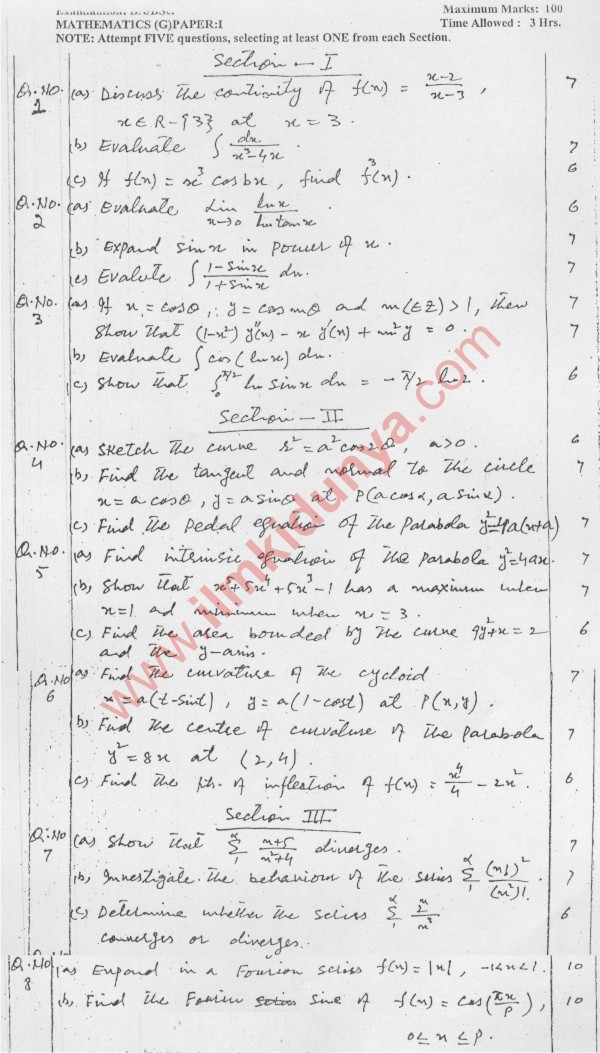 Maximum Marks: 100
MATHEMATICS (G)PAPER:I Time Allowed : 3 Hrs.
NOTE: Attempt FIVE questions, selecting at least ONE from each Section.
Section - I
Q.NO. 1 (a) Discuss the continuity of f(x) = (x-2)/(x-3), 7
x ∈ R-{3} at x = 3.
(b) Evaluate ∫ dx/(x³-4x). 7
(c) If f(x) = x³ cos bx, find f³(x). 6
Q.NO. 2 (a) Evaluate Lim x→0 ln x/ln tan x 6
(b) Expand sin x in power of x. 7
(c) Evalute ∫ (1-sin x)/(1+sin x) dx. 7
Q.NO. 3 (a) If x = cosθ, y = cos mθ and m(∈Z) > 1, then 7
show that (1-x²) y''(x) - x y'(x) + m²y = 0. 7
(b) Evaluate ∫ cos(ln x) dx.
(c) Show that ∫₀^π/2 ln sin x dx = -π/2 ln 2. 6
Section - II
Q.NO. 4 (a) Sketch the curve r² = a² cos 2θ, a>0. 6
(b) Find the tangent and normal to the circle 7
x = a cosθ, y = a sinθ at P(a cosα, a sinα).
(c) Find the Pedal equation of the Parabola y²=4a(x+a) 7
Q.NO. 5 (a) Find intrinsic equation of the Parabola y²=4ax. 7
(b) Show that x⁵+5x⁴+5x³-1 has a maximum when 7
x=1 ad minimum when x = 3.
(c) Find the area bounded by the curve 9y²+x = 2 6
and the y-axis.
Q.NO 6 (a) Find the curvature of the cycloid 7
x = a(t-sint), y = a(1-cost) at P(x,y).
(b) Find the centre of curvature of the Parabola 7
y² = 8x at (2,4).
(c) Find the pts. of inflection of f(x) = x⁴/4 - 2x². 6
Section III
Q.NO 7 (a) Show that Σ₁^∞ (n+5)/(n²+4) diverges. 7
(b) Investigate the behaviour of the series Σ₁^∞ (n!)²/(n²)!. 7
(c) Determine whether the series Σ₁^∞ 2ⁿ/n³ 6
converges or diverges.
Q.NO 8 (a) Expand in a Fourion series f(x) = |x|, -1<x<1. 10
(b) Find the Fourier sine of f(x) = cos(πx/p), 10
0 ≤ x ≤ p.
www.ilmkidunya.com